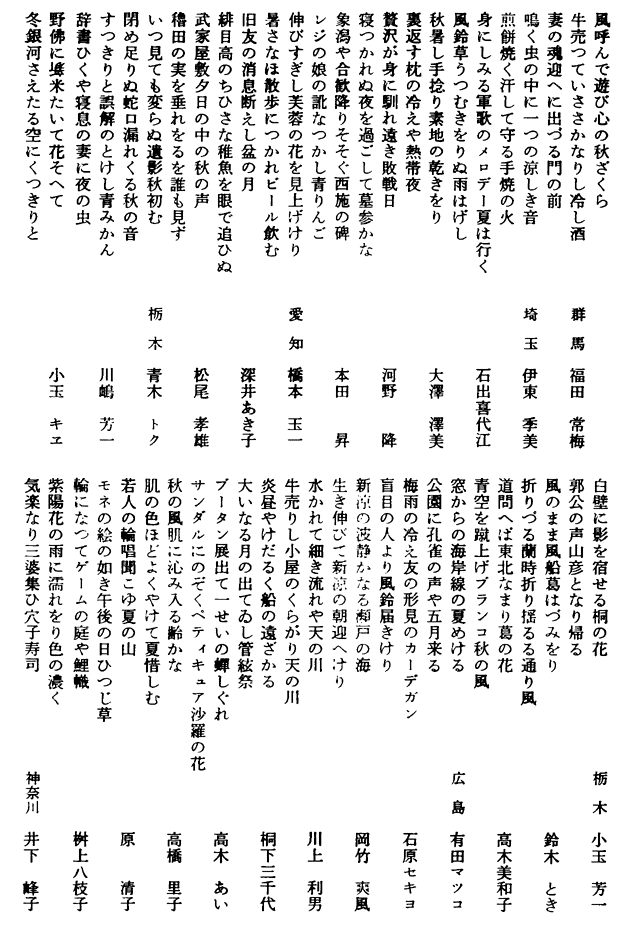 風呼んで遊び心の秋ざくら
牛売つていささかなりし冷し酒
群馬 福田 常梅
妻の魂迎へに出づる門の前
鳴く虫の中に一つの涼しき音
埼玉 伊東 季美
煎餅焼く汗して守る手焼の火
身にしみる軍歌のメロデー夏は行く
石出喜代江
風鈴草うつむきをりぬ雨はげし
秋暑し手捻り素地の乾きをり
大澤 澤美
裏返す枕の冷えや熱帯夜
贅沢が身に馴れ遠き敗戦日
河野 隆
寝つかれぬ夜を過ごして墓参かな
象潟や合歓降りそそぐ西施の碑
本田 昇
レジの娘の訛なつかし青りんご
伸びすぎし芙蓉の花を見上げけり
愛知 橋本 玉一
暑さなほ散歩につかれビール飲む
旧友の消息断えし盆の月
深井あき子
緋目高のちひさな稚魚を眼で追ひぬ
武家屋敷夕日の中の秋の声
松尾 孝雄
穭田の実を垂れをるを誰も見ず
いつ見ても変らぬ遺影秋初む
栃木 青木 トク
閉め足りぬ蛇口漏れくる秋の音
すつきりと誤解のとけし青みかん
川嶋 芳一
辞書ひくや寝息の妻に夜の虫
野佛に米たいて花そへて
小玉 キヱ
冬銀河さえたる空にくつきりと
白壁に影を宿せる桐の花
栃木 小玉 芳一
郭公の声山彦となり帰る
風のまま風船葛はづみをり
鈴木 とき
折りづる蘭時折り揺るる通り風
道問へば東北なまり葛の花
高木美和子
青空を蹴上げブランコ秋の風
窓からの海岸線の夏めける
広島 有田マツコ
公園に孔雀の声や五月来る
梅雨の冷え友の形見のカーデガン
石原セキヨ
盲目の人より風鈴届きけり
新涼の波静かなる瀬戸の海
岡竹 爽風
生き伸びて新涼の朝迎へけり
水かれて細き流れや天の川
川上 利男
牛売りし小屋のくらがり天の川
炎昼やけだるく船の遠ざかる
桐下三千代
大いなる月の出てゐし管絃祭
ブータン展出て一せいの蟬しぐれ
高木 あい
サンダルにのぞくペティキュア沙羅の花
秋の風肌に沁み入る齢かな
高橋 里子
肌の色ほどよくやけて夏惜しむ
若人の輪唱聞こゆ夏の山
原 清子
モネの絵の如き午後の日ひつじ草
輪になつてゲームの庭や鯉幟
桝上八枝子
紫陽花の雨に濡れをり色の濃く
気楽なり三婆集ひ穴子寿司
神奈川 井下 峰子